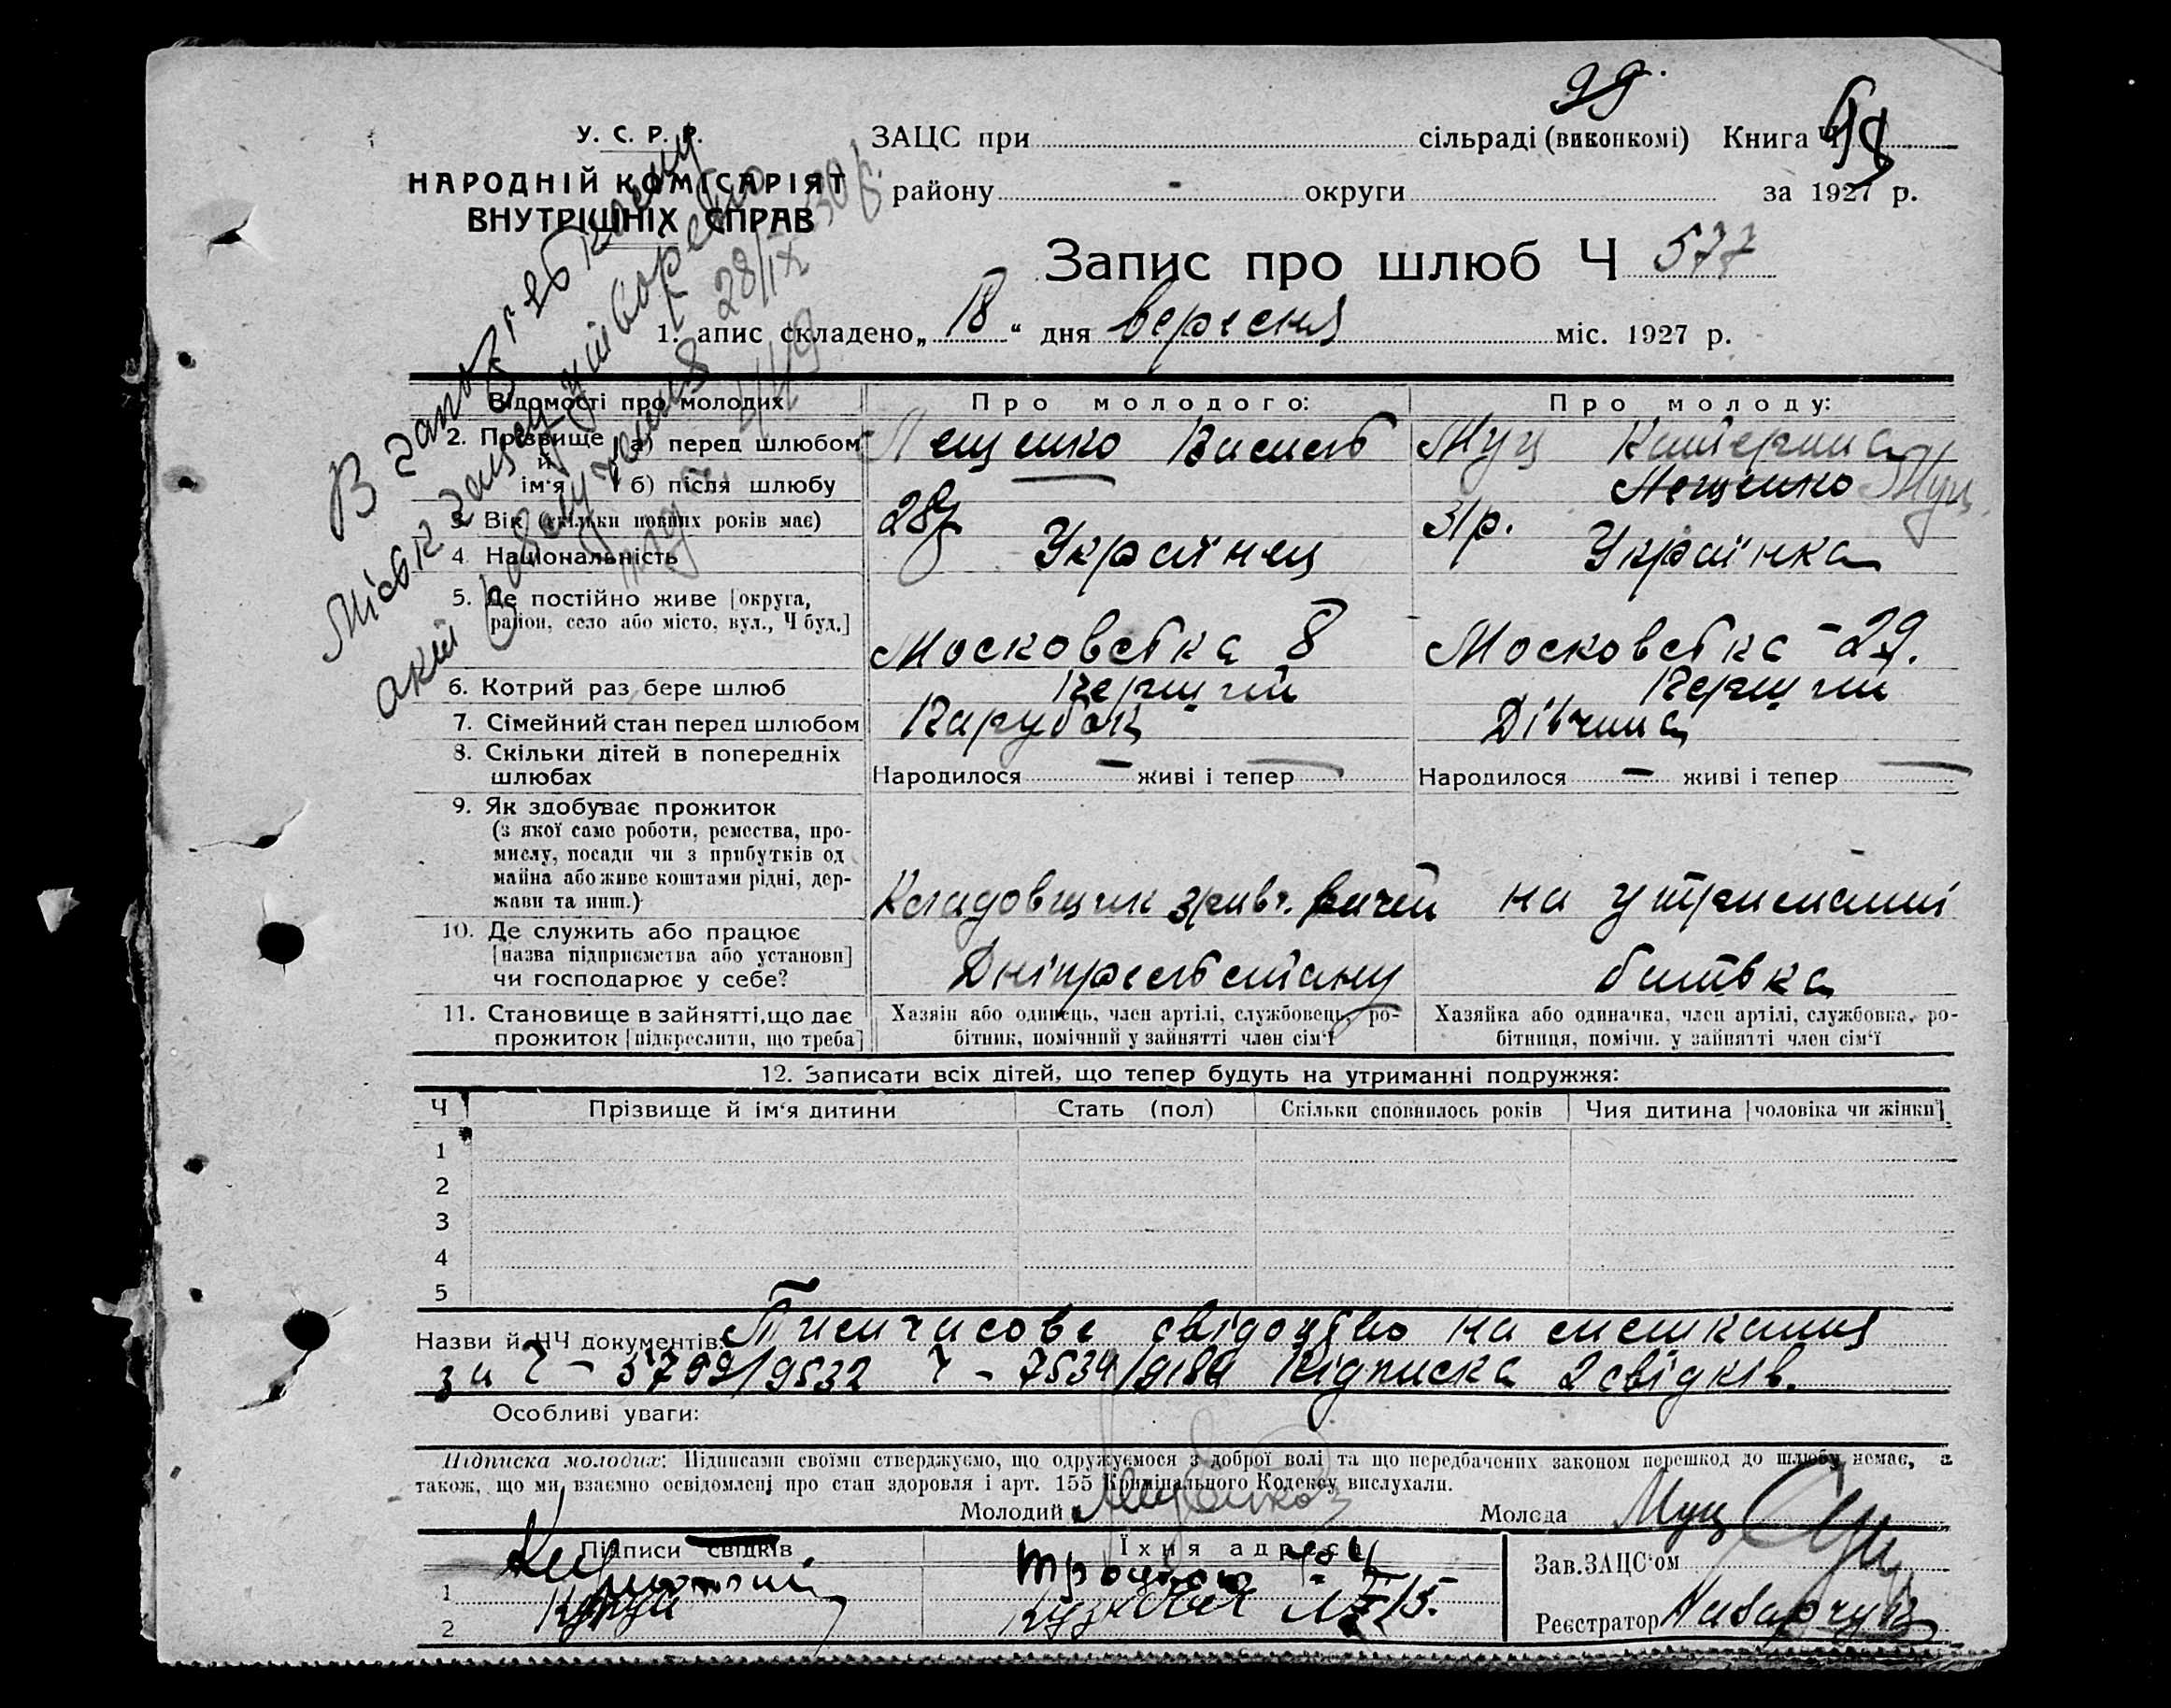 99.
У. С. Р. Р.
НАРОДНІЙ КОМІСАРІЯТ
ВНУТРІШНІХ СПРАВ
ЗАЦС при сільраді (виконкомі) Книга Ч
району - округи за 1927 р.
Запис про шлюб Ч 577
1. апис складено „18“ дня вересня міс. 1927 р.
Відомості про молодих
Про молодого:
Про молоду:
2. Прізвище й ім'я
а) перед шлюбом
Лещенко Василь
Муц Катерина
б) після шлюбу
Лещенко Муц
3. Вік (скільки повних років має)
28
31р.
4 Національність
Українец
Українка
5. Де постійно живе [округа,
район, село або місто, вул., Ч буд.]
Московська 8
Московська - 29.
6. Котрий раз бере шлюб
Перший
Перший
7. Сімейний стан перед шлюбом
Парубок
Дівчина
8. Скільки дітей в попередніх
шлюбах
Народилося — живі і тепер —
Народилося — живі і тепер —
9. Як здобуває прожиток
(з якої саме роботи, ремества, про-
мислу, посади чи з прибутків од
майна або живе коштами рідні, дер-
жави та инш.)
Кладовщик
на утриманні
10. Де служить або працює
[назва підприємства або установи]
чи господарює у себе?
батька
11. Становище в зайнятті, що дає
прожиток [підкреслити, що треба]
Хазяїн або одинець, член артілі, службовець, ро-
бітник, помічний у зайнятті член сім'ї
Хазяйка або одиначка, член артілі, службовка, ро-
бітниця, помічн. у зайнятті член сім'ї
12. Записати всіх дітей, що тепер будуть на утриманні подружжя:
Ч
Прізвище й ім'я дитини
Стать (пол)
Скільки сповнилось років
Чия дитина [чоловіка чи жінки]
1
2
3
4
5
Назви й ЧЧ документів: Тимчасове свідоцтво на мешкання
за Ч - 5799/9532 Ч - 7534/9184 Підписка 2 свідків.
Особливі уваги:
Підписка молодих: Підписами своїми стверджуємо, що одружуємося з доброї волі та що передбачених законом перешкод до шлюбу немає, а
також, що ми взаємно освідомлені про стан здоровля і арт. 155 Кримінального Кодексу вислухали.
Молодий Лещенко
Молода Муц
Підписи свідків
Їхня адреса
Зав. ЗАЦС'ом
1
2
Реєстратор